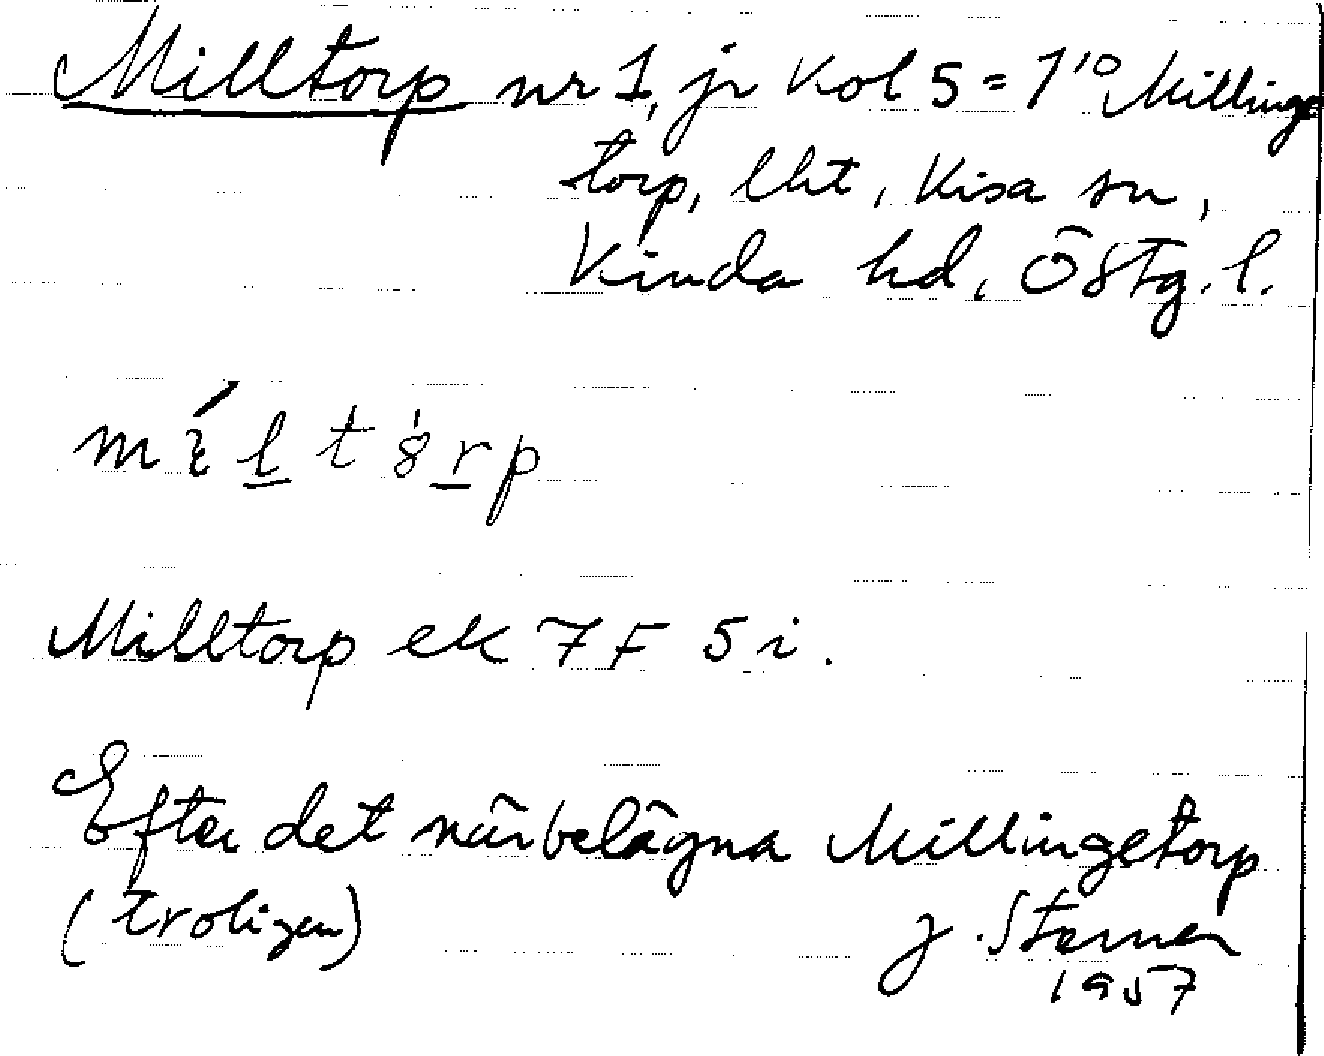 Milltorp nr 1, jr kol 5 = 1'° Millinge
torp, lht, Kisa sn,
Kinda hd, Östg. l.
Milltorp ek 7F 5i.
Efter det närbelägna Millingetorp
(troligen)
J. Sterner
1957